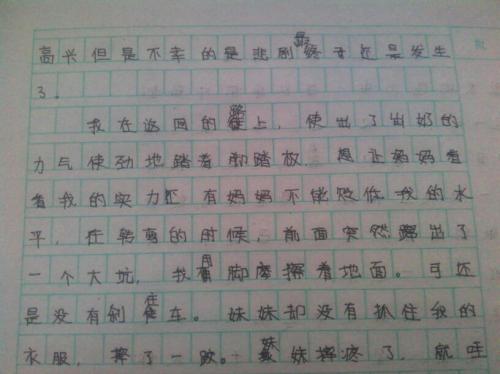 高兴但是不幸的是悲剧终于还是发生
了。
我在返回的路上，使出了出奶的
力气使劲地踏着脚踏板，想让妈妈看
看我的实力 有妈妈不能贬低我的水
平，在转弯的时候，前面突然蹿出了
一个大坑，我用脚摩擦着地面。可还
是没有刹住车。妹妹却没有抓住我的
衣服，摔了一跤。妹妹摔疼了，就哇